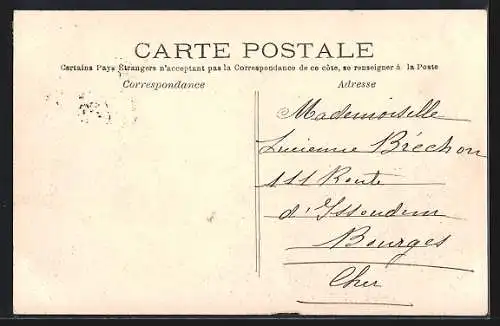 CARTE POSTALE
Certains Pays Étrangers n'acceptant pas la Correspondance de ce côté, se renseigner à la Poste
Correspondance
Adresse
Mademoiselle
Lucienne Bréchon
111 Route
d'Issoudun
Bourges
Cher